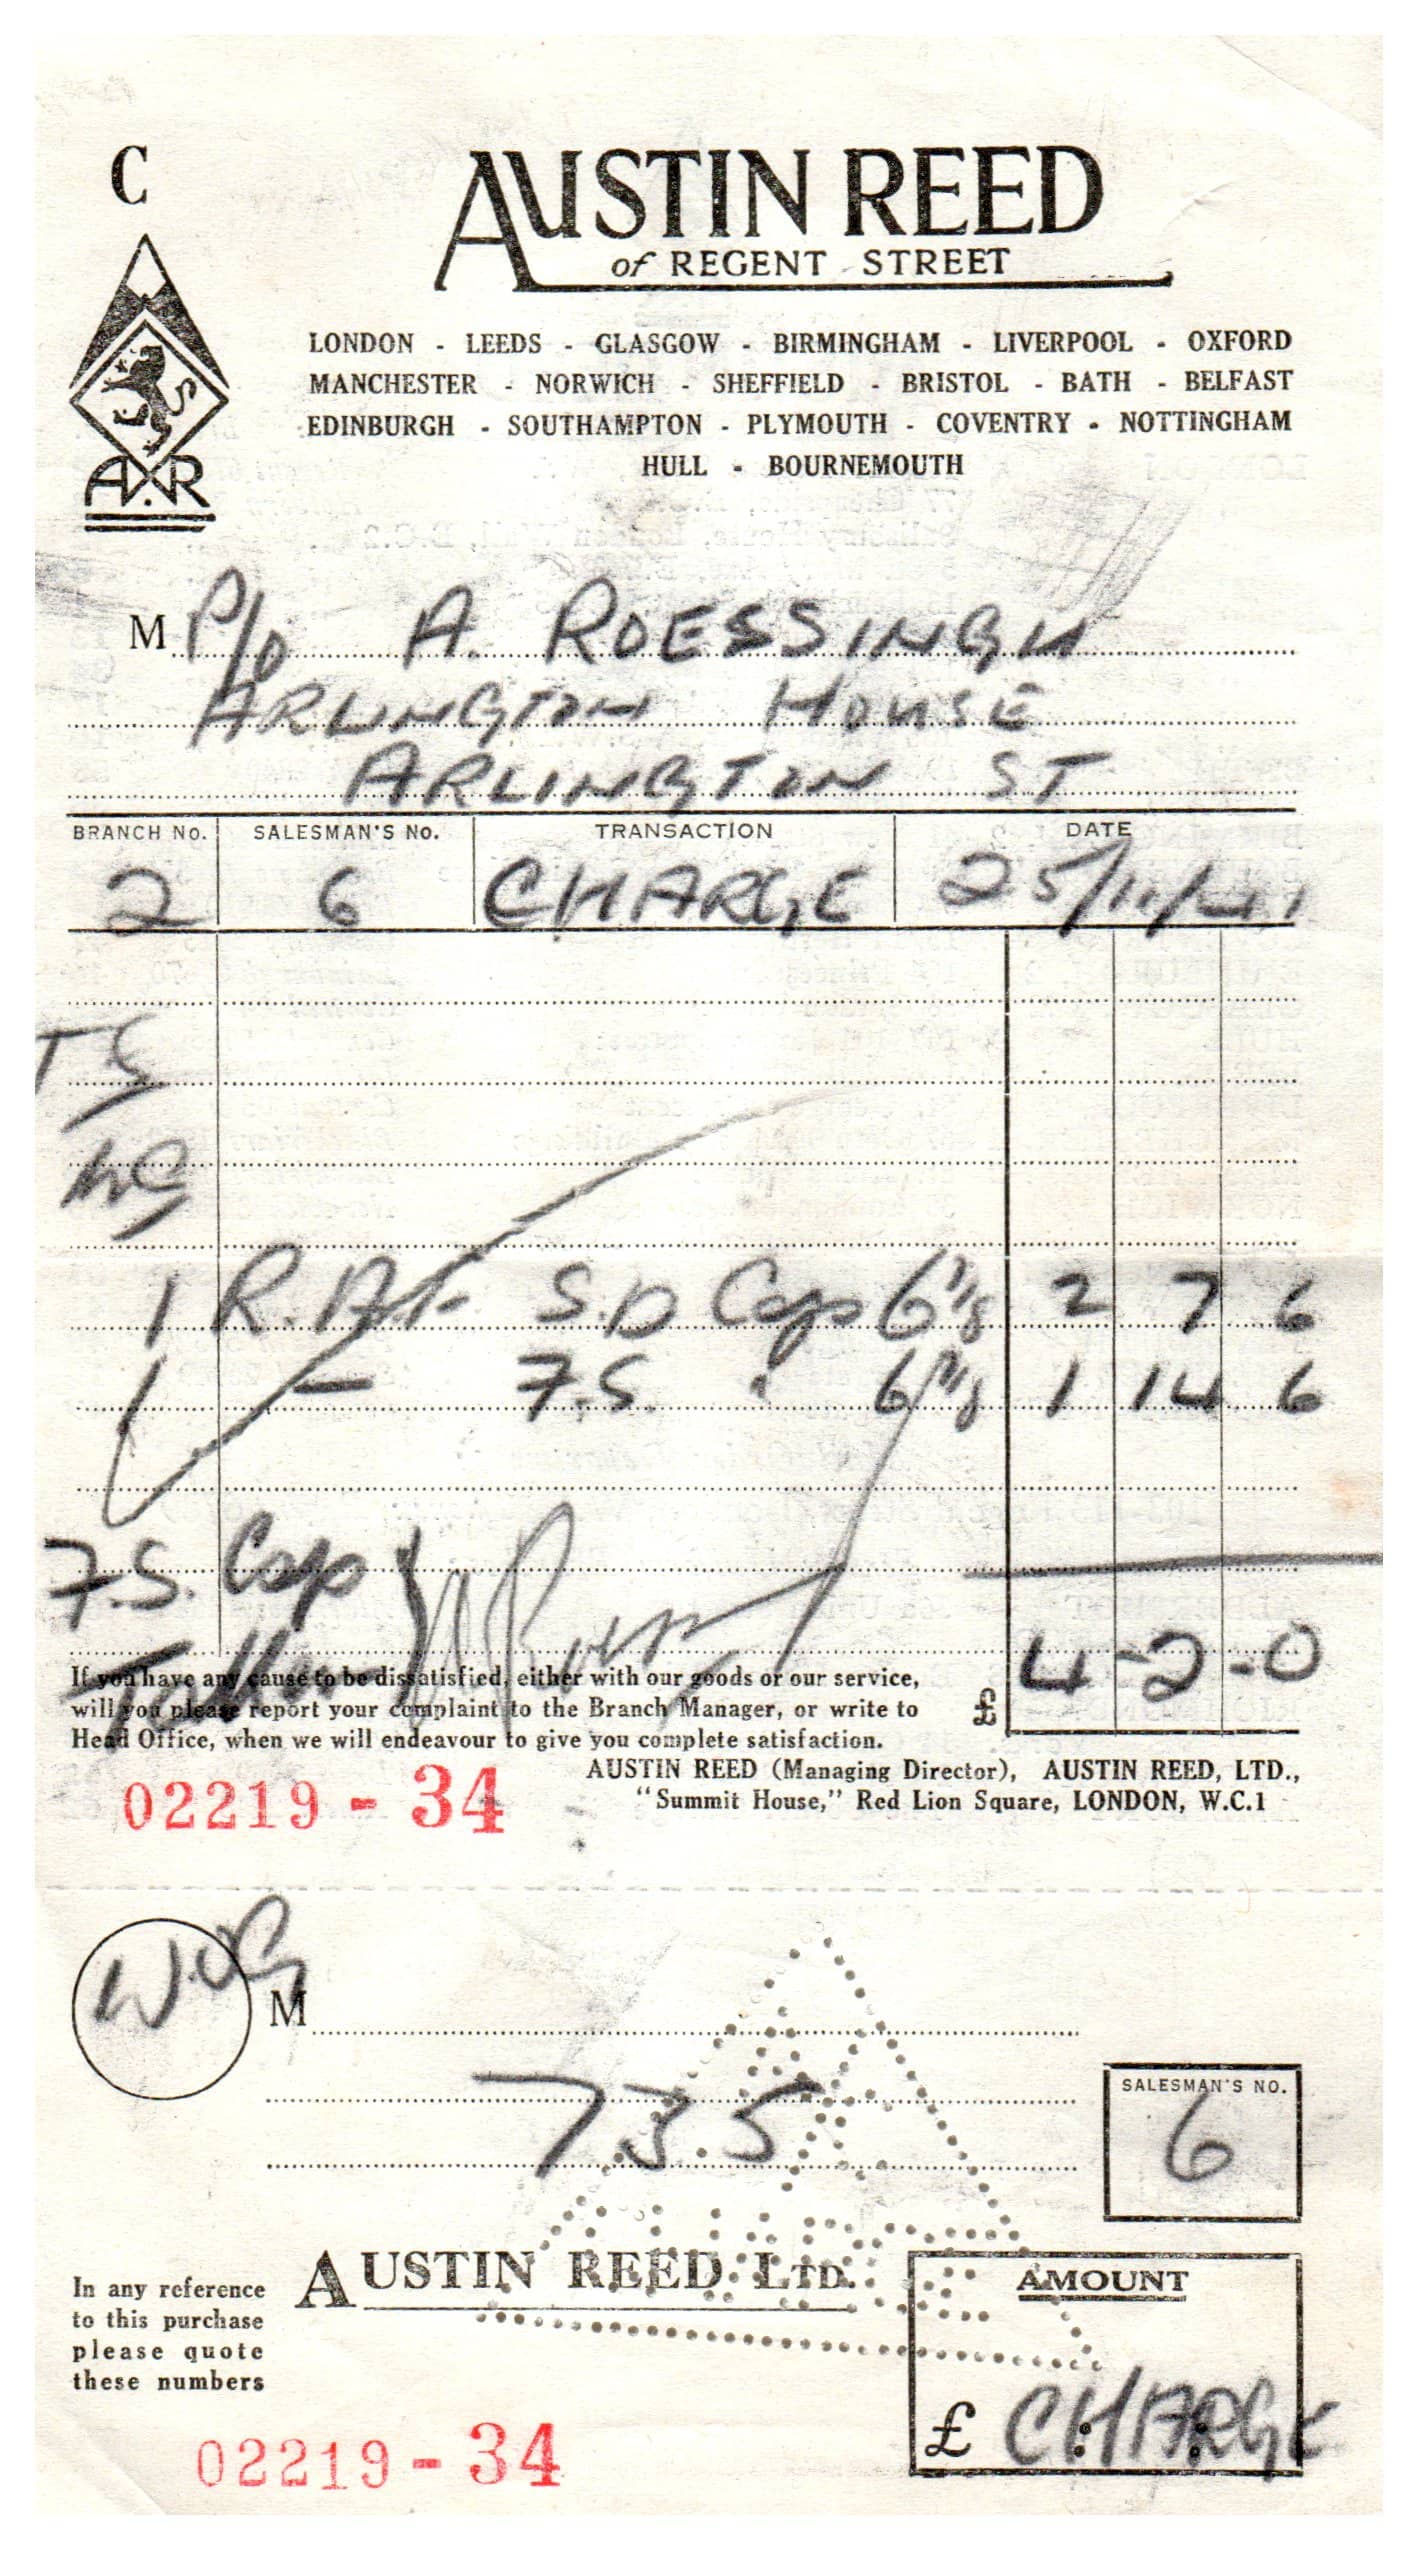 C
AUSTIN REED
of REGENT STREET
LONDON - LEEDS - GLASGOW - BIRMINGHAM - LIVERPOOL - OXFORD
MANCHESTER - NORWICH - SHEFFIELD - BRISTOL - BATH - BELFAST
EDINBURGH - SOUTHAMPTON - PLYMOUTH - COVENTRY - NOTTINGHAM
HULL - BOURNEMOUTH
A.R
M P/O A. ROESSINGH
ARLINGTON HOUSE
ARLINGTON ST
BRANCH No. SALESMAN'S No. TRANSACTION DATE
2 6 CHARGE 25/11/41
1 R.A.F. S.D Cap 6⅞ 2 7 6
1 — F.S. " 1 14 6
F.S. Cap
4-2-0
If you have any cause to be dissatisfied, either with our goods or our service,
will you please report your complaint to the Branch Manager, or write to £
Head Office, when we will endeavour to give you complete satisfaction.
AUSTIN REED (Managing Director), AUSTIN REED, LTD.,
"Summit House," Red Lion Square, LONDON, W.C.1
02219 - 34
M
735
SALESMAN'S NO.
6
AUSTIN REED LTD.
In any reference
to this purchase
please quote
these numbers
AMOUNT
£ CHARGE
02219 - 34